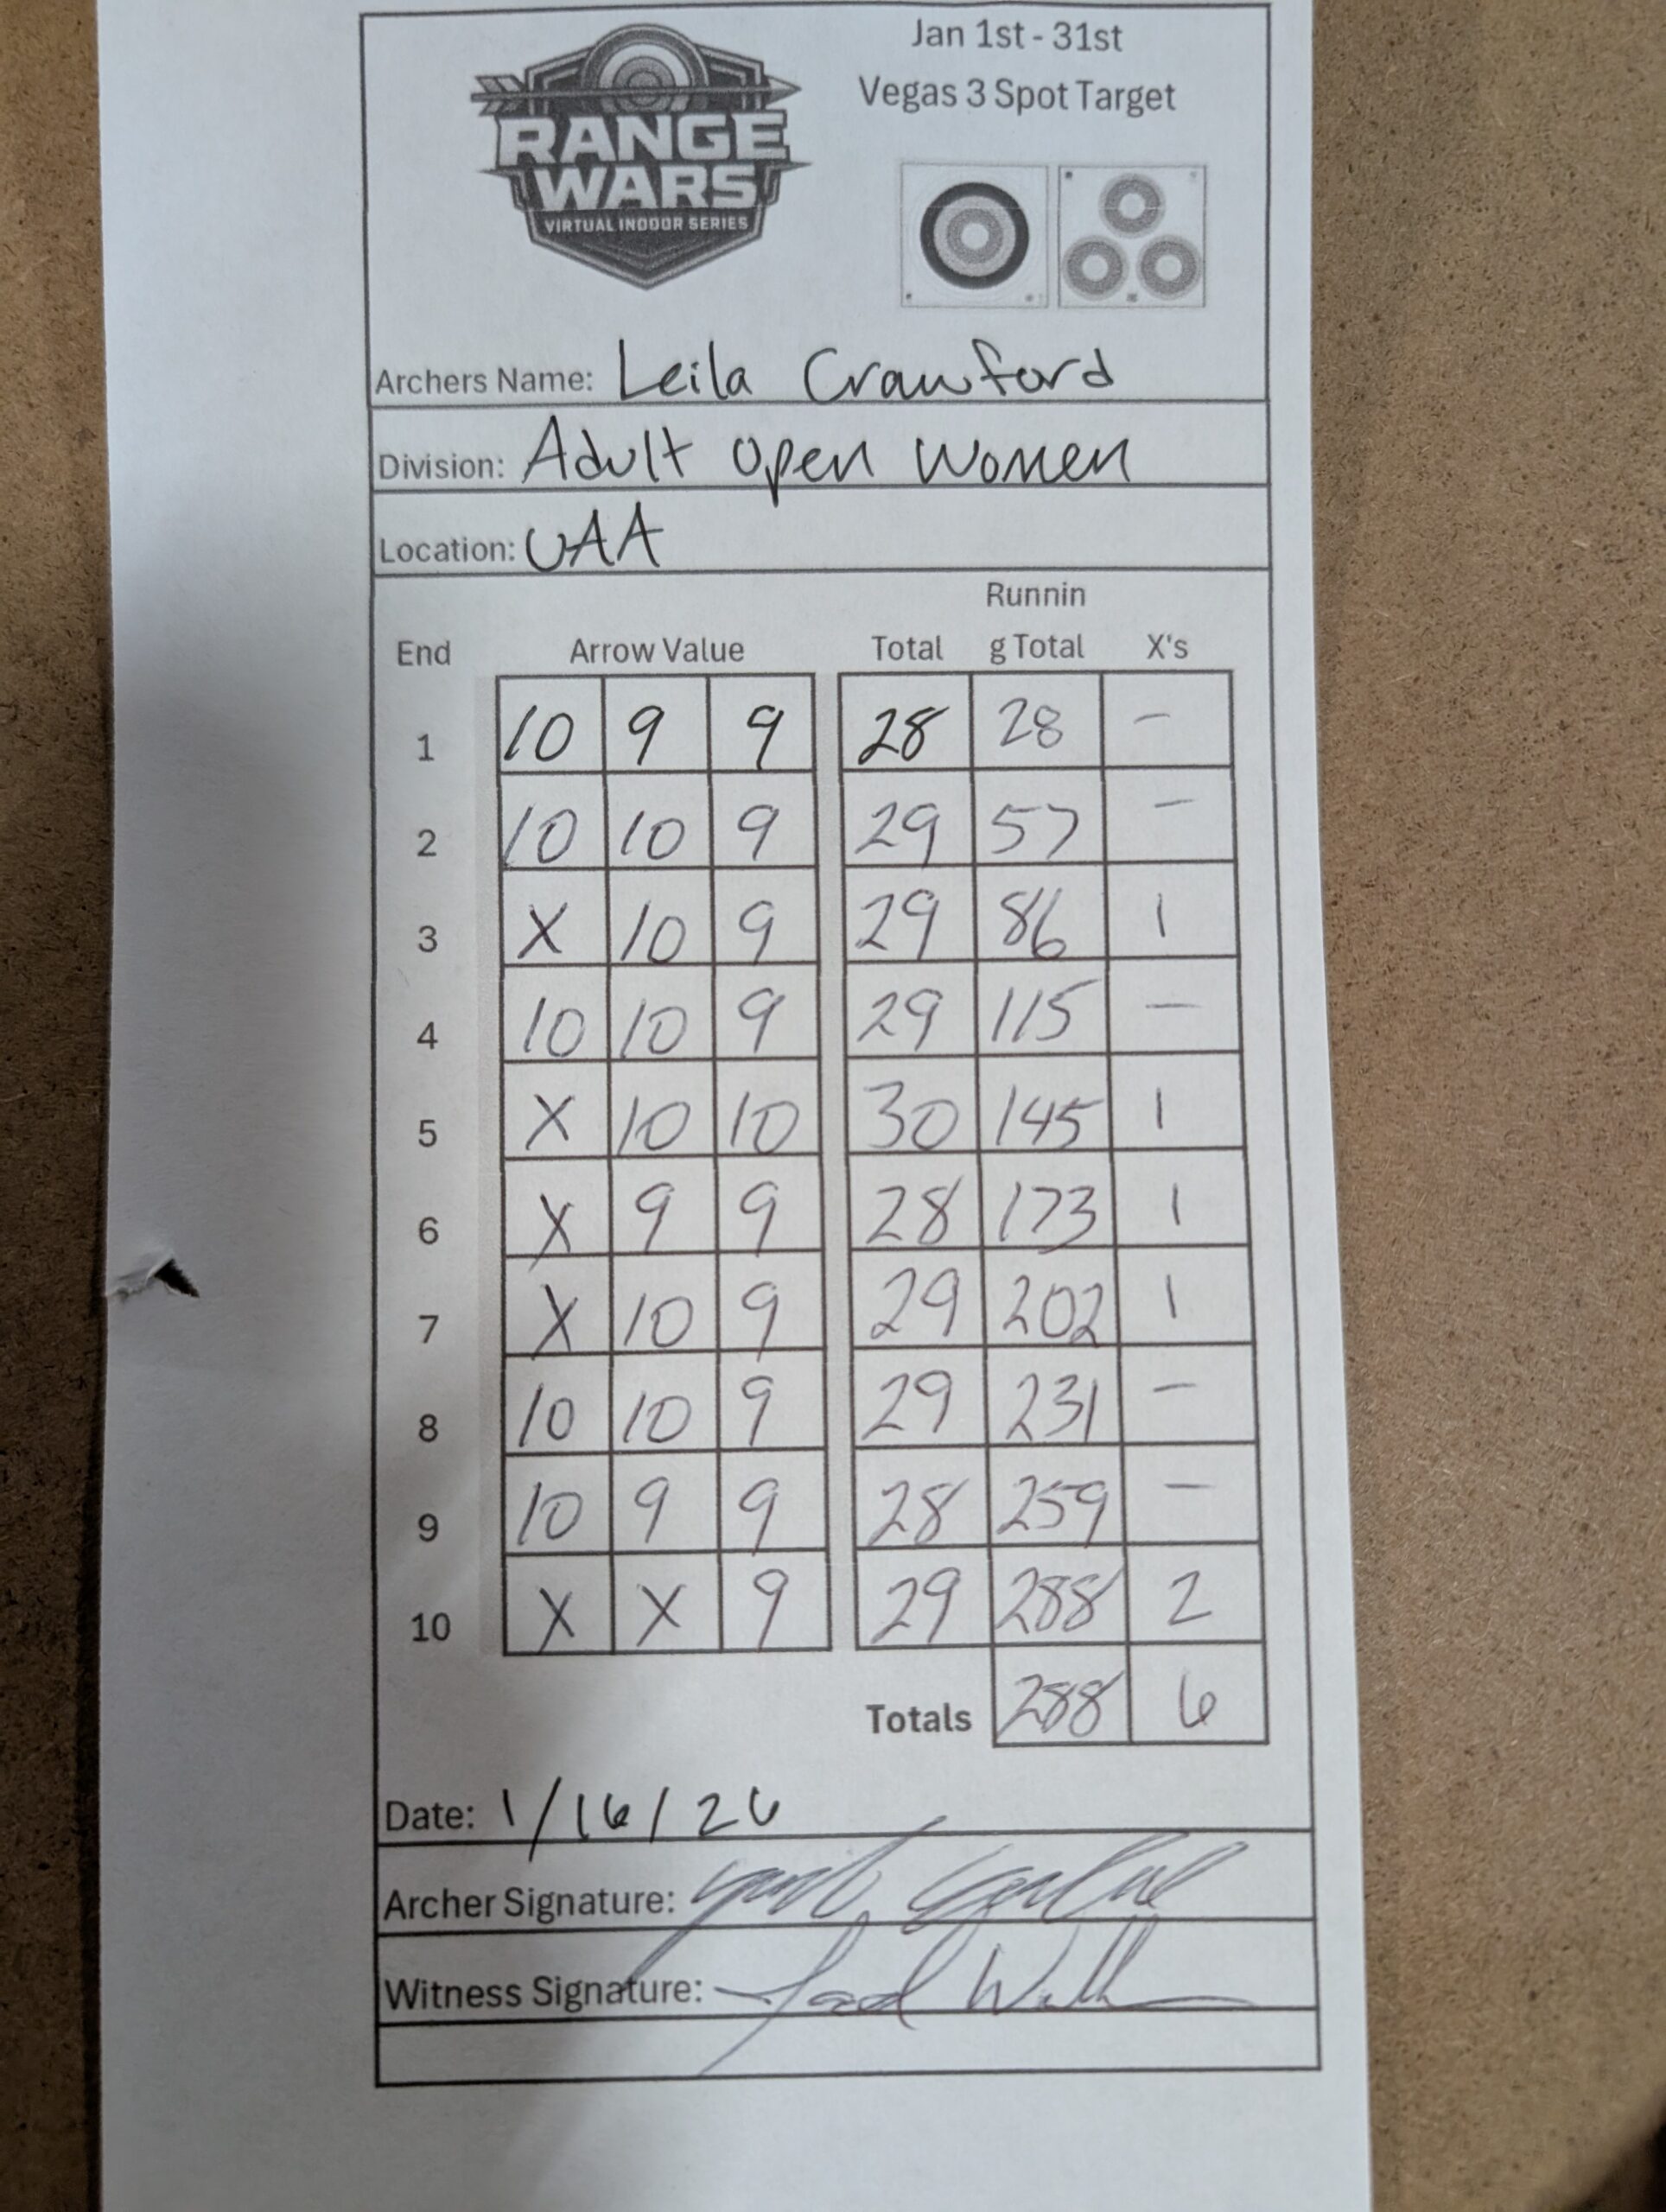 Jan 1st - 31st
Vegas 3 Spot Target
RANGE
WARS
VIRTUAL INDOOR SERIES
Archers Name: Leila Crawford
Division: Adult Open Women
Location: UAA
Runnin
End Arrow Value Total g Total X's
1 10 9 9 28 28 -
2 10 10 9 29 57 -
3 X 10 9 29 86 1
4 10 10 9 29 115 -
5 X 10 10 30 145 1
6 X 9 9 28 173 1
7 X 10 9 29 202 1
8 10 10 9 29 231 -
9 10 9 9 28 259 -
10 X X 9 29 288 2
Totals 288 6
Date: 1/16/26
Archer Signature:
Witness Signature: